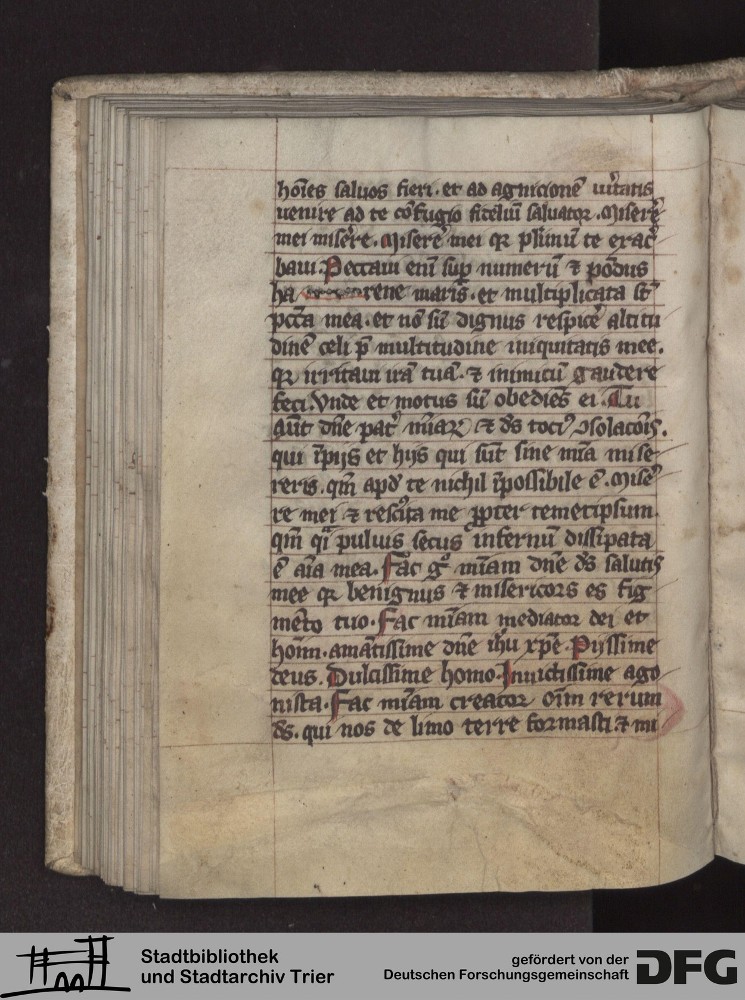 hoīes saluos fieri. et ad agnicionē ūitatis
uenire ad te cōfugio fideliū saluator. Miserē
mei miserē. Miserē mei qꝛ plurimū te exacˀ
baui. Peccaui enī suꝑ numerū ⁊ pōdus
ha rene maris. et multiplicata sūt
pctā mea. et nō sū dignus respicē altitu
dinē celi p̄ multitudine iniquitatis mee.
qꝛ irritaui irā tuā. ⁊ inimicū gaudere
feci. Vnde et motus sū obediēs ei. Tu
aūt dn̄e patˀ mīaꝝ ⁊ ds̄ tociꝰ ꝯsolacōis.
qui īpijs et hijs qui sūt sine mīa mise
reris. qm̄ apd̓ te nichil īpossibile ē. Misē
re mei ⁊ rescīta me ꝓpter temetipsum.
qm̄ q̄i puluis secus infernū dissipata
ē aīa mea. Fac gͦ mīam dn̄e ds̄ salutis
mee qꝛ benignus ⁊ misericors es fig
mēto tuo. Fac mīam mediator dei et
hoīm. amātissime dn̄e ih̄u xp̄e. Pijssime
deus. Dulcissime homo. Inuictissime ago
nista. Fac mīam creator oīm rerum
ds̄. qui nos de limo terre formasti. ⁊ mi
Stadtbibliothek
und Stadtarchiv Trier
gefördert von der
Deutschen Forschungsgemeinschaft
DFG